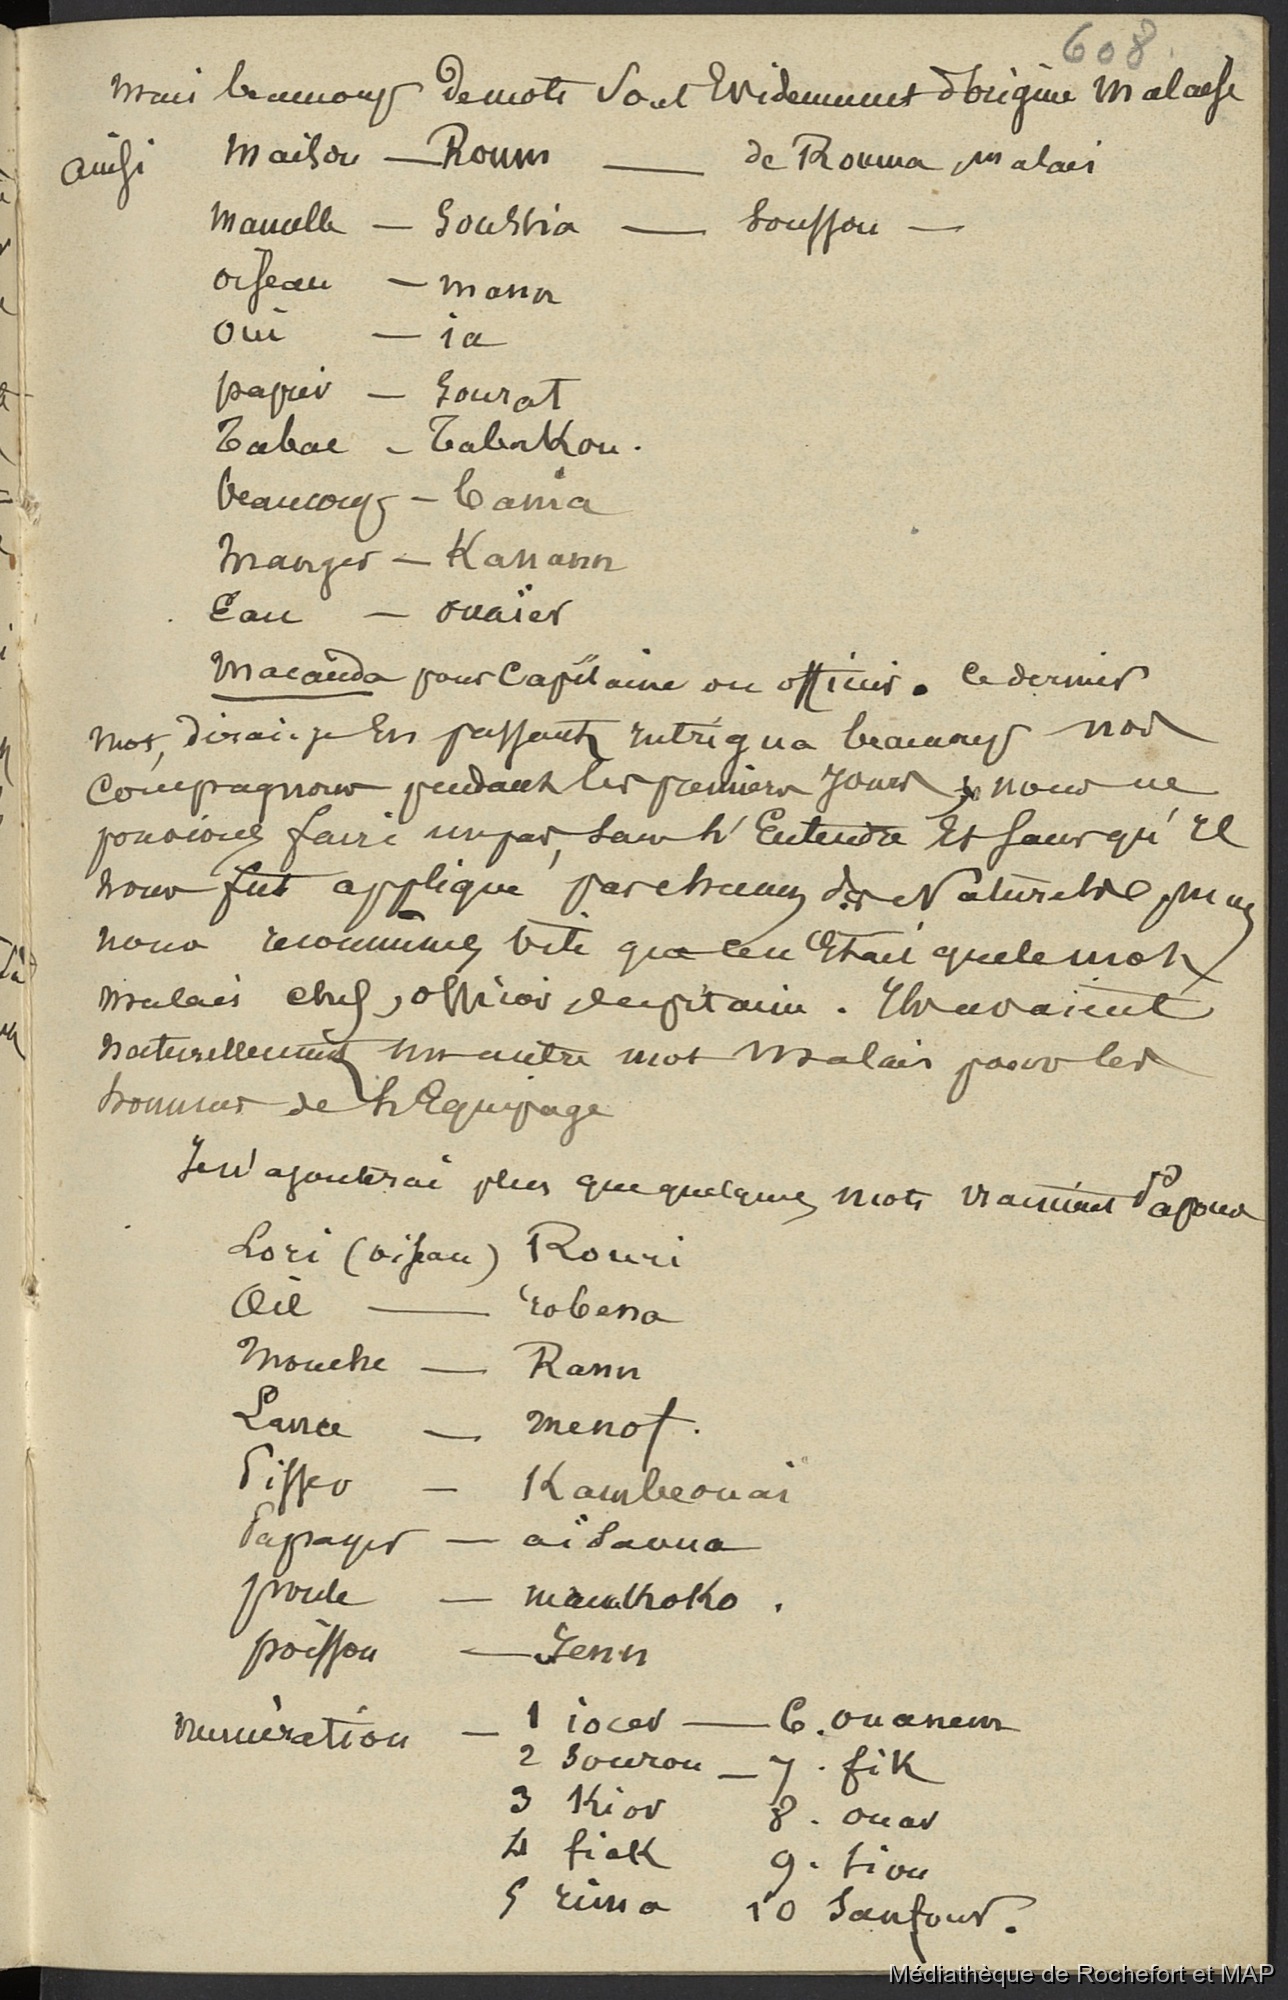 608
Mais beaucoup de mots sont Evidemment d'origine Malaise
ainsi Maison — Roum — de Rouma Malais
Mamelle — Soussia — Soussou —
oiseau — mann
oui — ia
papier — Sourat
Tabac - Tabakou.
beaucoup — bania
Manger — Kanann
Eau — ouaïer
Macaïda pour Capitaine ou officier. Ce dernier
mot, dirai-je En passant, intrigua beaucoup nos
Compagnons pendant les premiers Jours, nous ne
pouvions faire un pas, sans l'Entendre Et sans qu'Il
nous fut appliqué par chacun des Naturels, mais
nous reconnûmes vite que ce n'Etait que le mot
Malais chef, officier, capitaine. Ils avaient
naturellement un autre mot Malais pour les
hommes de l'Equipage
Je n'ajouterai plus que quelques mots vraiment Papous
Lori (oiseau) Rouri
Oeil — robena
Mouche — Rann
Lance — menof.
Pisser — Kambeouai
Papayer — aisaoua
poule — manhoko.
poisson — Ienn
numération — 1 iocer — 6. ouanem
2 Sourou — 7. fik
3 Kior 8. ouar
4 fiak 9. siou
5 rima 10 Sanfour.
Médiathèque de Rochefort et MAP